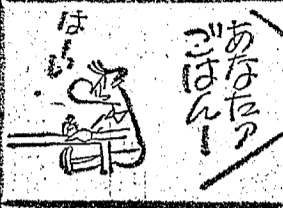 あなたァ
ごはんー
はーい